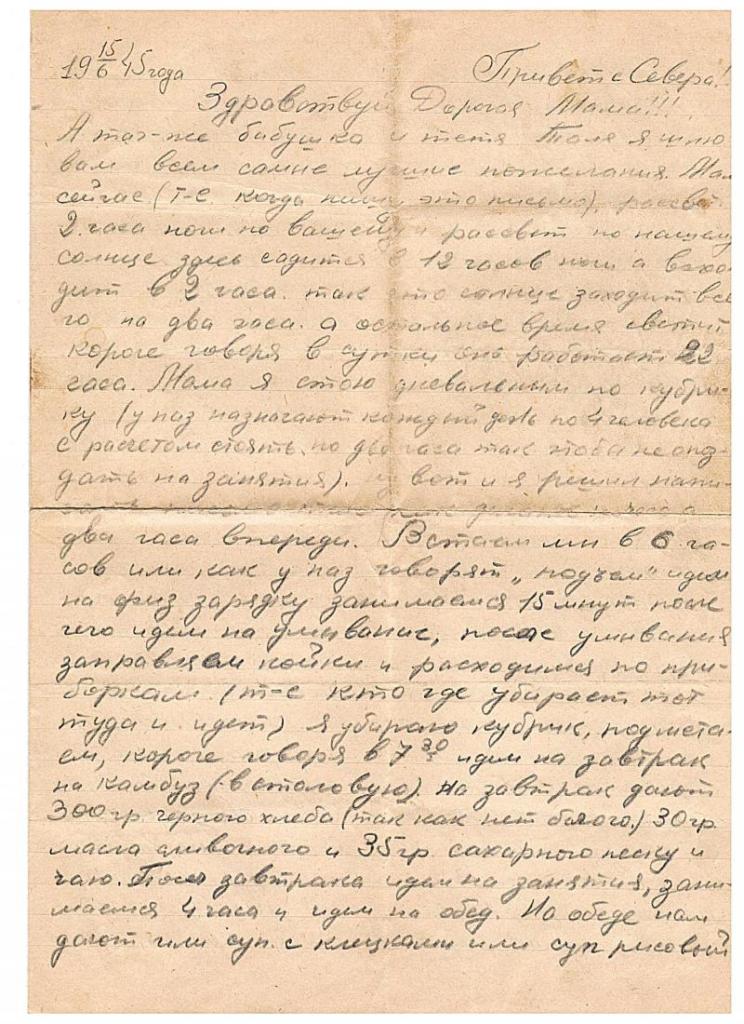 19 15/6 45 года Привет с Севера!
Здравствуй Дорогая Мама!!!
А так-же бабушка и тетя Толя я шлю
вам всем самые лучшие пожелания. Мам
сейчас (т-е. когда пишу это письмо), рассвет
2 часа ночи по вашему и рассвет по нашему
солнце здесь садится в 12 часов ночи а восхо-
дит в 2 часа. так что солнце заходит все
го на два часа. а остальное время светит
короче говоря в сутки оно работает 22
часа. Мама я стою дневальным по кубри-
ку (у нас назначают каждый день по 4 человека
с расчетом стоять по два часа так чтоба не опоз-
дать на занятия). и вот и я решил напи-
сать
два часа впереди. Встаем мы в 6 ча-
сов или как у нас говорят „подъем" идем
на физ зарядку занимаемся 15 минут после
чего идем на умывание, после умывания
заправляем койки и расходимся по при-
боркам (т-е кто где убирает тот
туда и идет) я убираю кубрик, подмета-
ем, короче говоря в 7 30 идем на завтрак
на камбуз (в столовую). На завтрак дают
300 гр. черного хлеба (так как нет белого.) 30 гр.
масла сливочного и 35 гр. сахарного песку и
чаю. После завтрака идем на занятия, зани-
маемся 4 часа и идем на обед. На обеде нам
дают или суп с клецками или суп рисовый